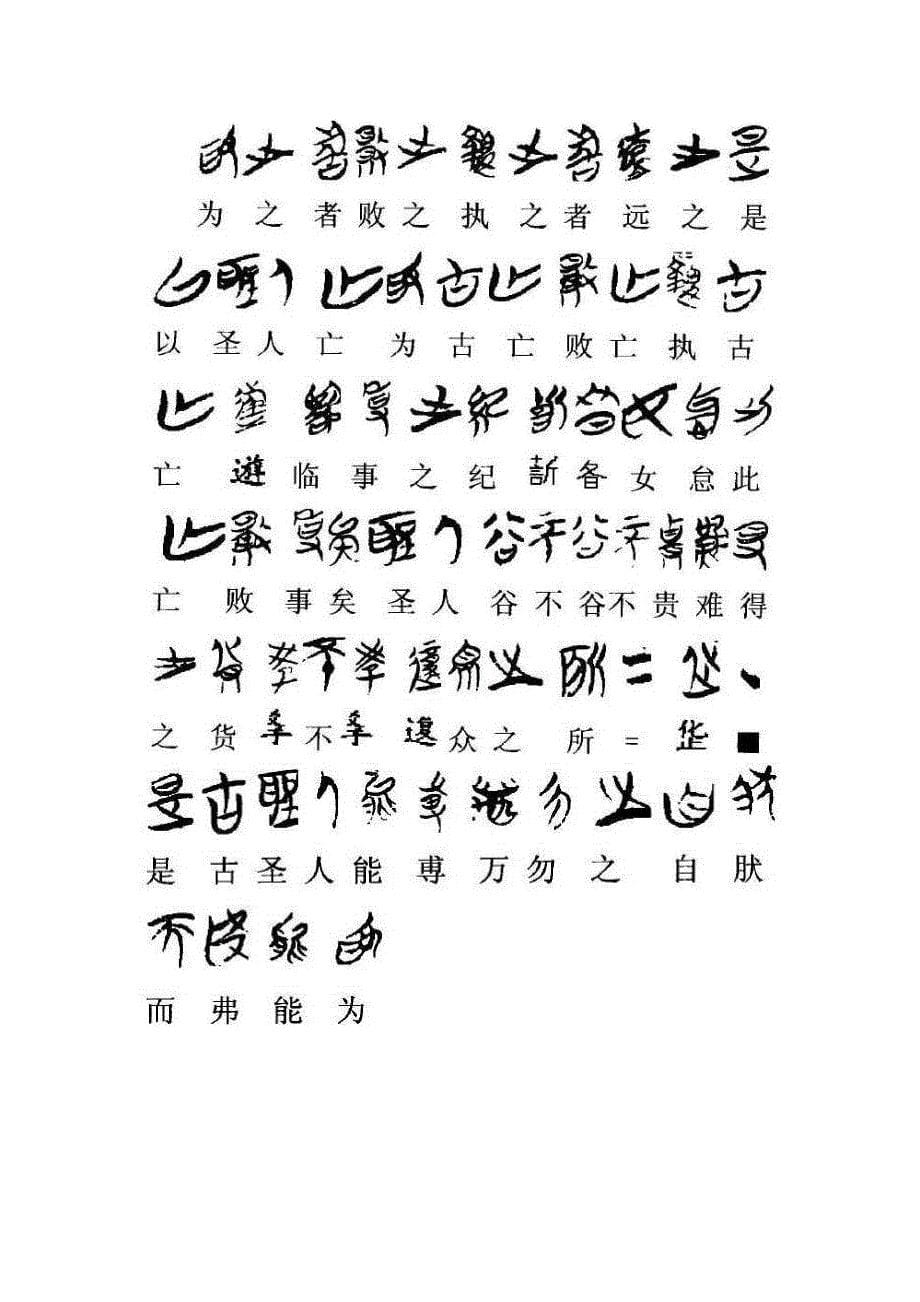 为之者败之执之者远之是
以圣人亡为古亡败亡执古
亡遊临事之纪訢各女怠此
亡败事矣圣人谷不谷不贵难得
之货不众之所=■
是古圣人能尃万勿之自肰
而弗能为